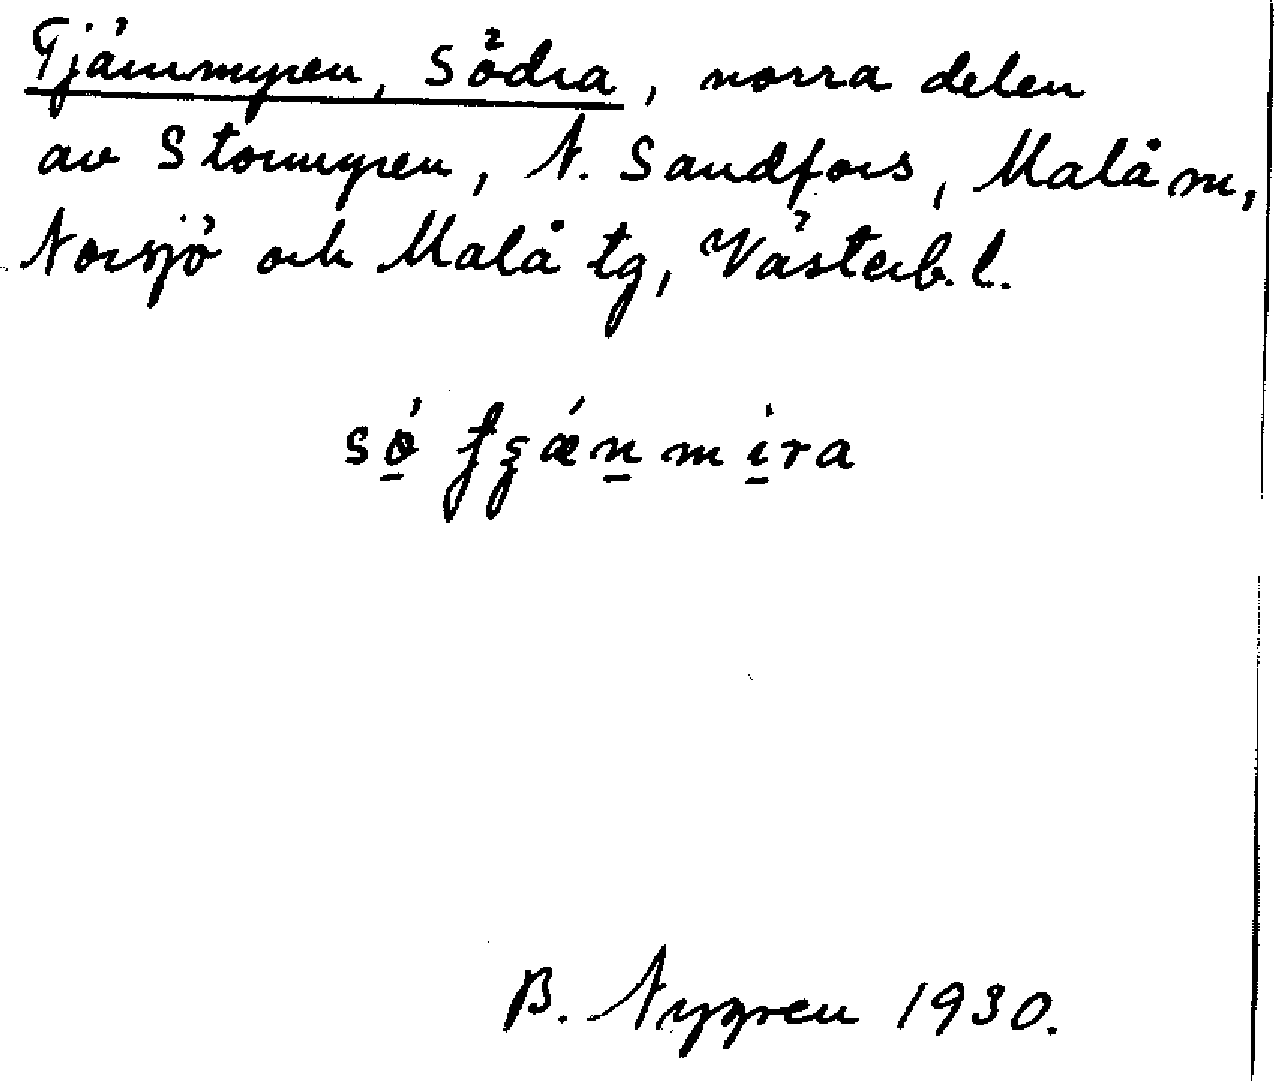 Tjärnmyren, Södra, norra delen
av Stormyren, N. Sandfors, Malå m,
Norsjö och Malå tg, Västerb. l.
B. Nygren 1930.